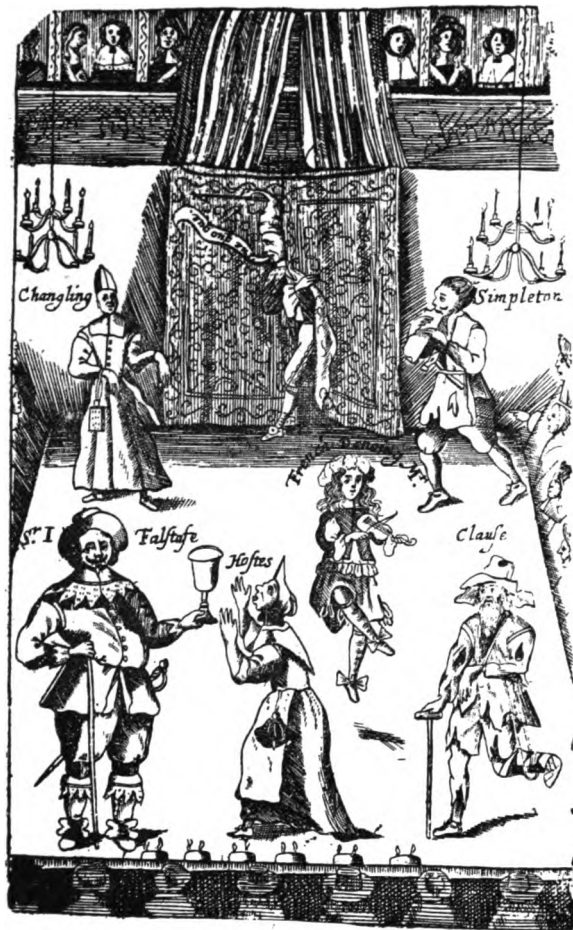 Tu quo que
Changling
Simpleton
French Dancing Mr.
Sr. I Falstafe
Hostes
Clauſe